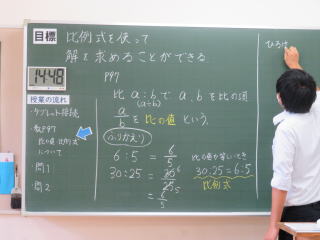 目標
比例式を使って
解を求めることができる
14:48
P97
授業の流れ
・タブレット接続
・教P97
比の値 比例式
について
・問1
・問2
比 a:b で a, b を比の項
(a÷b)
a/b を比の値 という。
ふりかえり
6:5 = 6/5
30:25 = 30/25
= 6/5
比の値が等しいとき
30:25=6:5
比例式